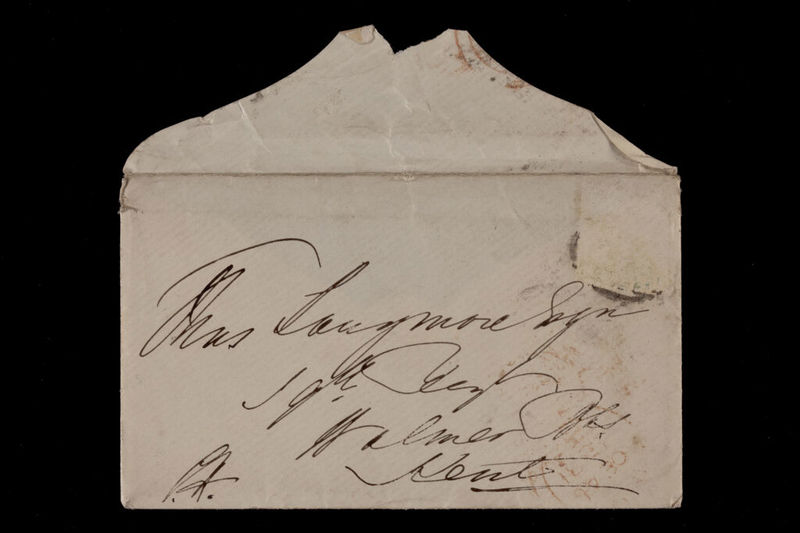 Thos Longmore Esqre
19th Regt
Walmer Bks.
Kent